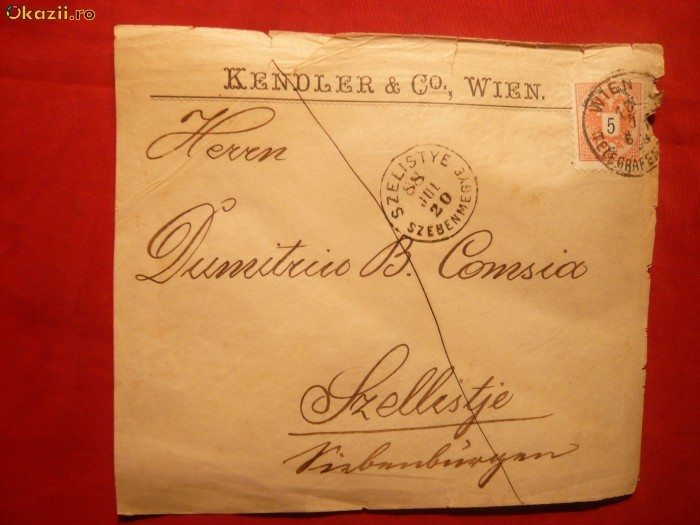 Okazii.ro
KENDLER & CO., WIEN.
WIEN
TELEGRAFEN
5
Herrn
SZELISTYE
88
JUL
20
SZEBENMEGYE
Dumitriu B. Comsia
Szellistje
Siebenbürgen